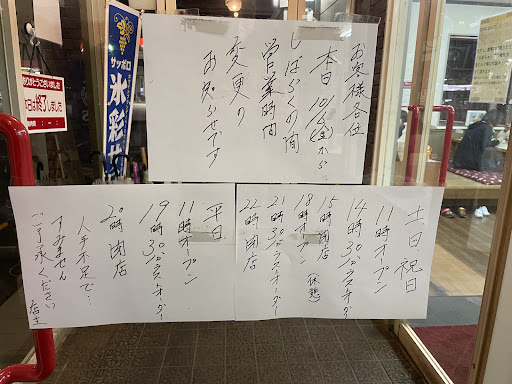 お客様各位
本日10/6(金)から
しばらくの間
営業時間
変更の
お知らせです
土日祝日
11時オープン
14時30分ラストオーダー
15時閉店
(休憩)
18時オープン
21時30分ラストオーダー
22時閉店
平日
11時オープン
19時30分ラストオーダー
20時閉店
人手不足で…
すみません
ご了承ください
店主
サッポロ
氷彩
ありがとうございました
本日は終了しました